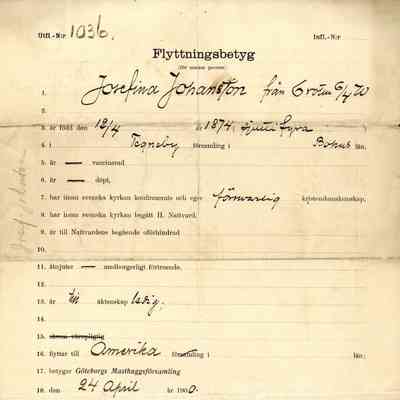 Utfl.-N:r 1036. Infl.-N:r
Flyttningsbetyg
(för enskan person)
1. Josefina Johansson från
2.
3. är född den 12/4 år 1874, sjuttifyra
4. i Tegneby församling i Bohus län,
5. är — vaccinerad
6. är — döpt,
7. har inom svenska kyrkan konfirmerats och eger försvarlig kristendomskunskap,
8. har inom svenska kyrkan begått H. Nattvard.
9. är till Nattvardens begående oförhindrad
10.
11. åtnjuter — medborgerligt förtroende.
12.
13. är till äktenskap ledig.
14.
15.
16. flyttar till Amerika församling i län;
17. betygar Göteborgs Masthuggsförsamling
18. den 24 April år 1900.